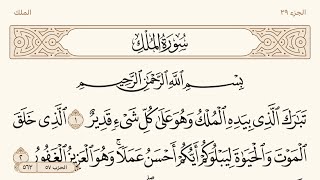 الجزء ٢٩
الملك
سُورَةُ المُلْكِ
بِسْمِ اللَّهِ الرَّحْمَٰنِ الرَّحِيمِ
تَبَٰرَكَ ٱلَّذِى بِيَدِهِ ٱلْمُلْكُ وَهُوَ عَلَىٰ كُلِّ شَىْءٍ قَدِيرٌ ١ ٱلَّذِى خَلَقَ
ٱلْمَوْتَ وَٱلْحَيَوٰةَ لِيَبْلُوَكُمْ أَيُّكُمْ أَحْسَنُ عَمَلًا ۚ وَهُوَ ٱلْعَزِيزُ ٱلْغَفُورُ ٢
الحزب ٥٧
٥٦٢